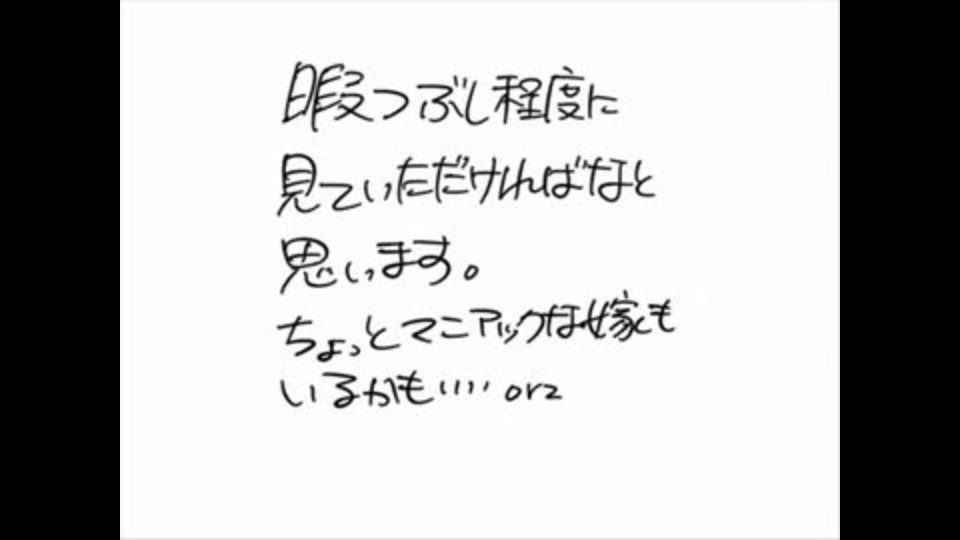 暇つぶし程度に
見ていただければなと
思います。
ちょっとマニアックな嫁も
いるかも‥‥orz